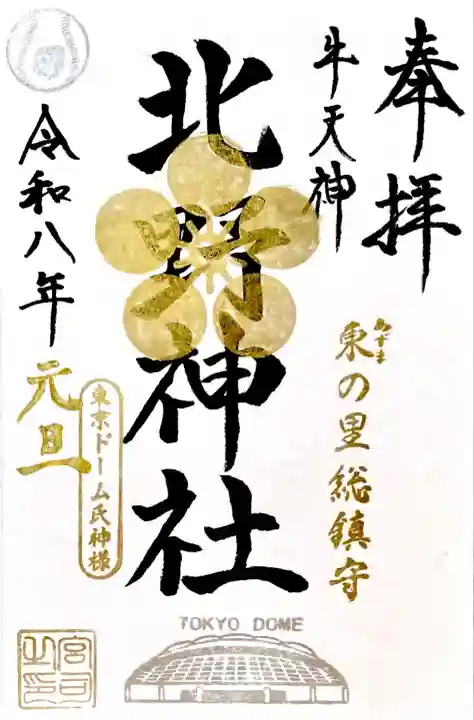 奉拝
牛天神
あずま
東の里総鎮守
北野神社
令和八年
元旦
東京ドーム氏神様
TOKYO DOME
宮司之印